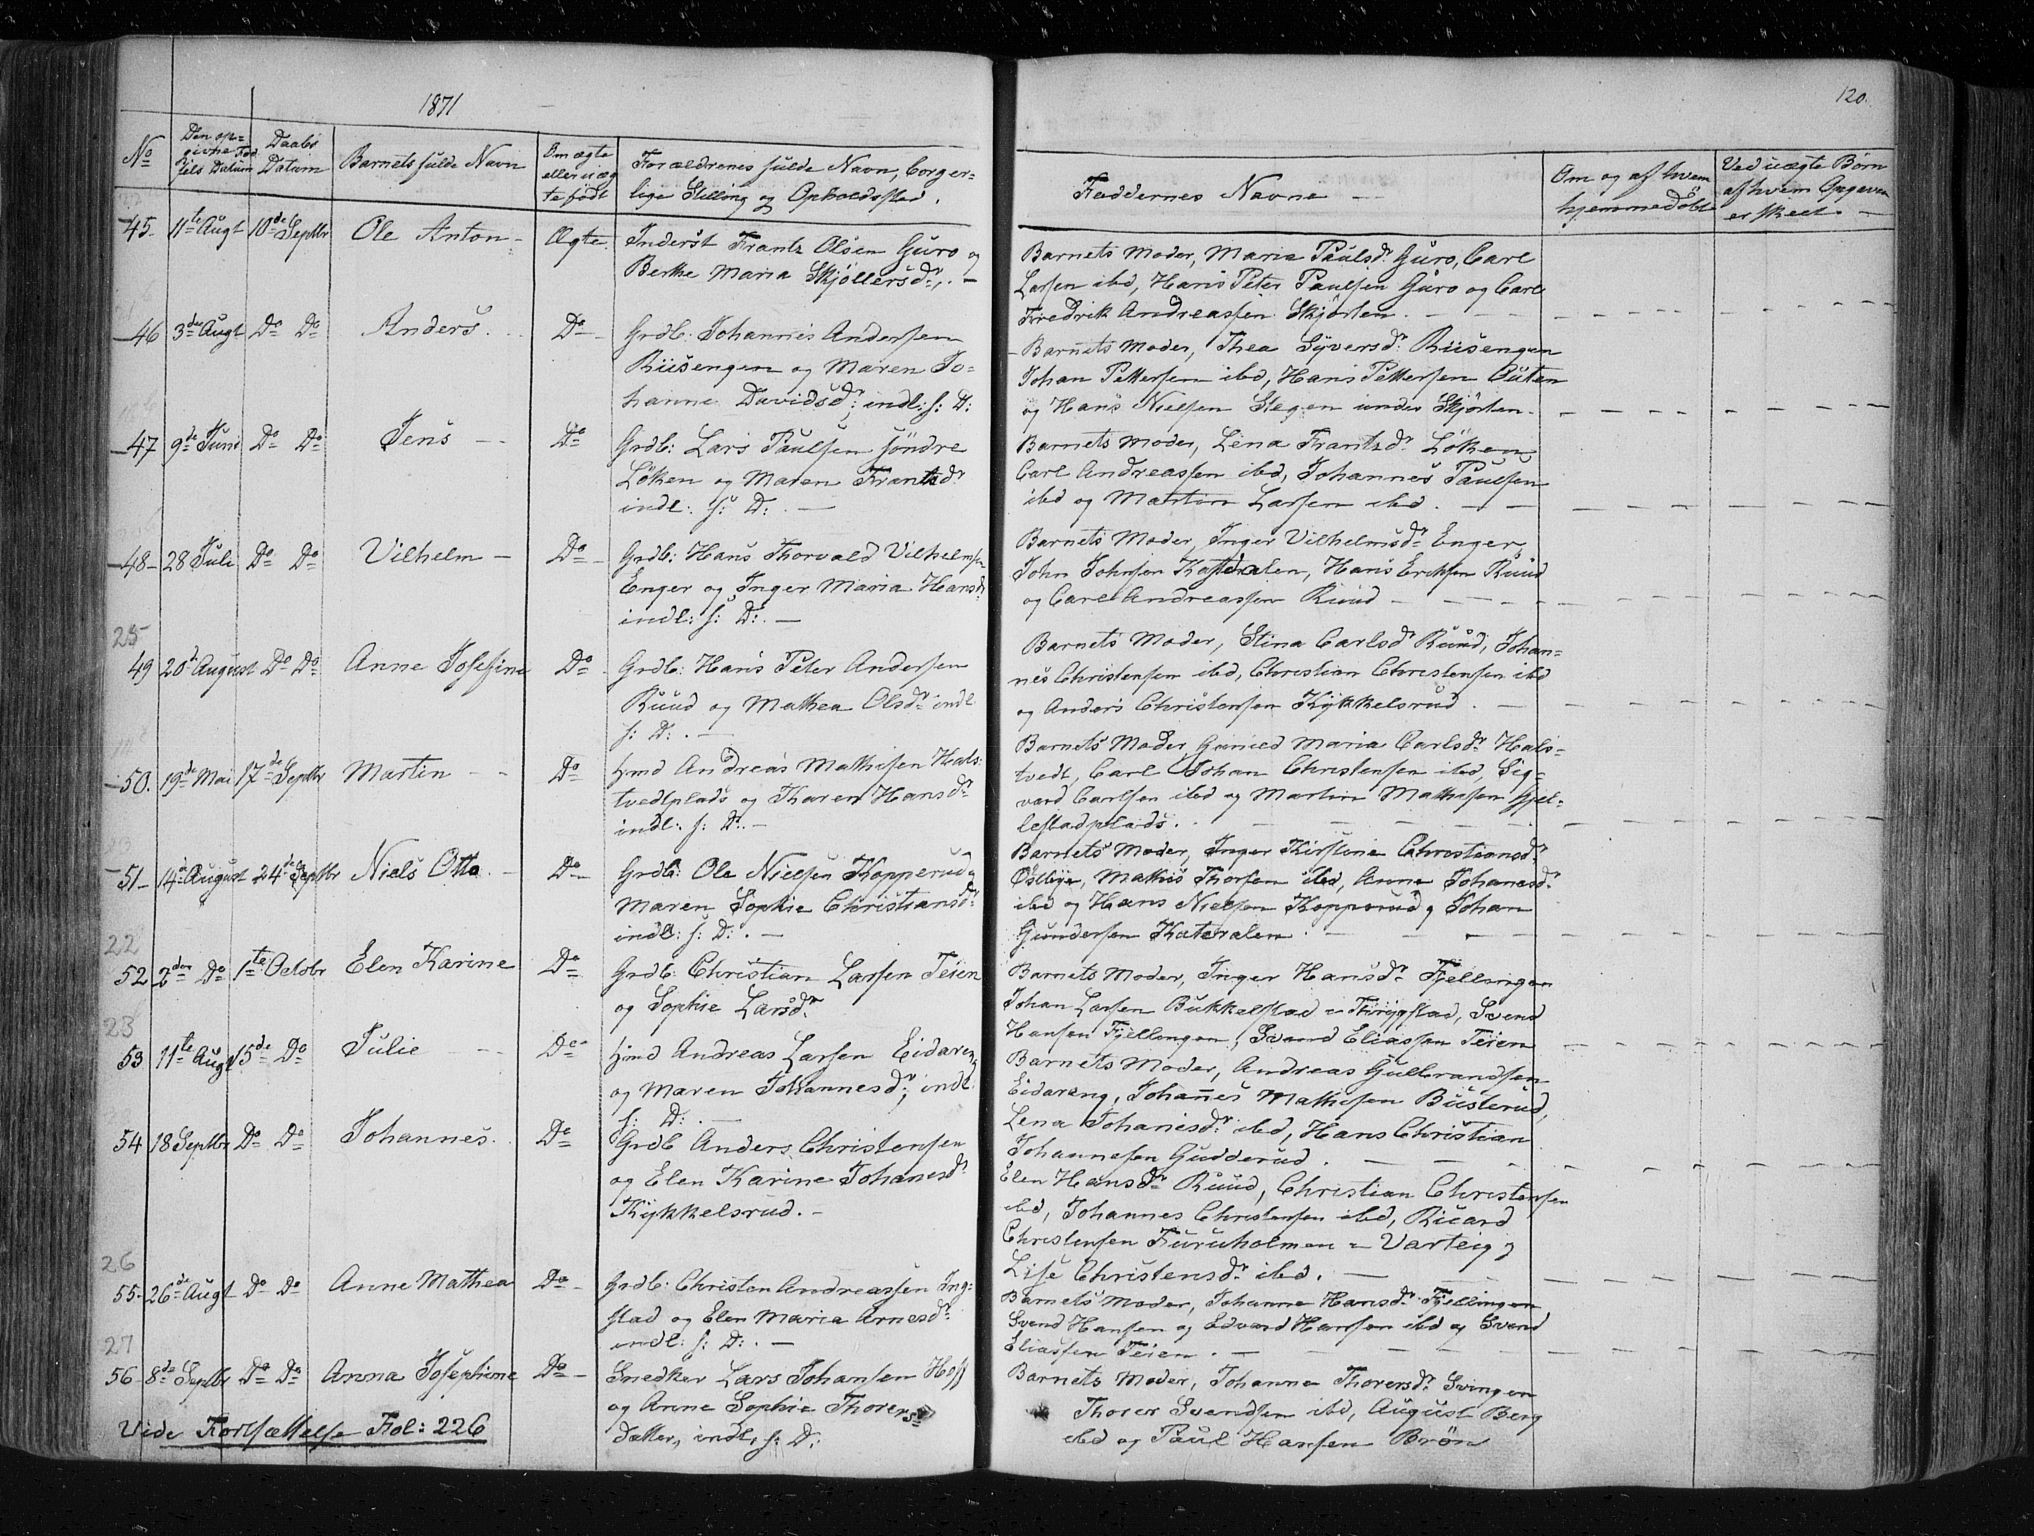 1871
120.
No
Den op=
givne Fød
sels Datum
Daabs
Datum
Barnets fulde Navn
Om ægte
eller uæg
te født
Forældrenes fulde Navn, borger-
lige Stilling og Opholdssted.
Faddernes Navne —
Om og af hvem
hjemmedøbt
Ved uægte Børn
af hvem Opgaven
er skeet. —
45. 11te Augt 10de Septbr Ole Anton - Ægte
Inderst Frantz Olsen Guro og
Berthe Maria Skjøllersdr, . —
Barnets Moder, Maria Paulsdr Guro, Carl
Larsen ibd, Hans Peter Paulsen Guro og Carl
Fredrik Andreassen Skjørten. —
46 3de Augt Do Do Anders. Do
Grdb: Johannes Andersen
Riisengen og Maren Jo=
hanne Davidsdr; indl: f: D:
Barnets Moder, Thea Syversdr Riisengen
Johan Pettersen ibd, Hans Pettersen
og Hans Nielsen Stegen under Skjørten.
47 9de Juni Do Do Jens — Do
Grdb: Lars Paulsen søndre
Løken og Maren Frantzdr
indl: f: D: . —
Barnets Moder, Lena Frantzdr Løken
Carl Andreassen ibd, Johannes Paulsen
ibd og Martin Larsen ibd. —
48 - 28 Juli Do Do Vilhelm — Do
Grdb: Hans Thorvald Vilhelmsn
Enger og Inger Maria Hansdr
indl: f: D: . —
Barnets Moder, Inger Vilhelmsdr Enger
John Johnsen Katteralen, Hans Eriksen Ruud
og Carl Andreassen Ruud —
25
49 20de August Do Do Anne Josefine Do
Grdb: Hans Peter Andersen
Ruud og Mathea Olsdr indl
f: D: . —
Barnets Moder, Stina Carlsdr Ruud, Johan=
nes Christensen ibd, Christian Christensen ibd
og Anders Christensen Kykkelsrud. —
50. 19de Mai 17de Septbr Martin — Do
Hmd Andreas Mathisen Hals=
tvedtplads og Karen Hansdr
indl: f: D: . —
Barnets Moder, Maria Carlsdr Hals-
tvedt, Carl Johan Christensen ibd, Sig=
vard Carlsen ibd og Martin Mathisen Gjel=
lestadplads.
51 - 14de August 24de Septbr Niels Otto - Do
Grdb: Ole Nielsen Kopperud og
Maren Sophie Christiansdr
indl: f: D: . —
Barnets Moder, Inger Kirstine Christiansdr
Østbye, Mathis Thorsen ibd, Anne Johanesdr
ibd og Hans Nielsen Kopperud, Johan
Gundersen Katteralen. —
22
52 2den Do 1te Octobr Elen Karine Do
Grdb: Christian Larsen Teien
og Sophie Larsdr
Barnets Moder, Inger Hansdr Fjellengen
Johan Larsen Bukkelstad = Thrygstad, Svend
Hansen Fjellengen, Svend Eliassen Teien
23
53 11te Augt 15de Do Julie — Do
Hmd Andreas Larsen Eidareng
og Maren Johannesdr; indl.
f: D: . —
Barnets Moder, Andreas Gulbrandsen
Eidareng, Johanes Mathisen Busterud,
Lena Johanesdr ibd, Hans Christian
Johannesen Gudderud. —
54 18 Septbr Do Do Johannes. Do
Grdb Anders Christensen
og Elen Karine Johanesdr
Kykkelsrud. —
Elen Hansdr Ruud, Christian Christensen
ibd, Johannes Christensen ibd, Ricard
Christensen Furuholmen = Varteig og
Lise Christensdr ibd. —
26
55. 26de Augt Do Do Anne Mathea Do
Grdb: Christen Andreassen Ing=
stad og Elen Maria Arnesdr
indl: f: D: . —
Barnets Moder, Johanne Hansdr Fjellingen
Svend Hansen og Edvard Hansen ibd og Svend
Eliassen Teien. —
27
56 8de Septbr Do Do Anna Josephine Do
Snedker Lars Johansen Hoff
og Anne Sophie Thorers
datter, indl, f: D:
Barnets Moder, Johanne Thorersdr Svingen
Thorer Svendsen ibd, August Berg
ibd og Paul Hansen Brøn
Vide Fortsættelse Fol: 226